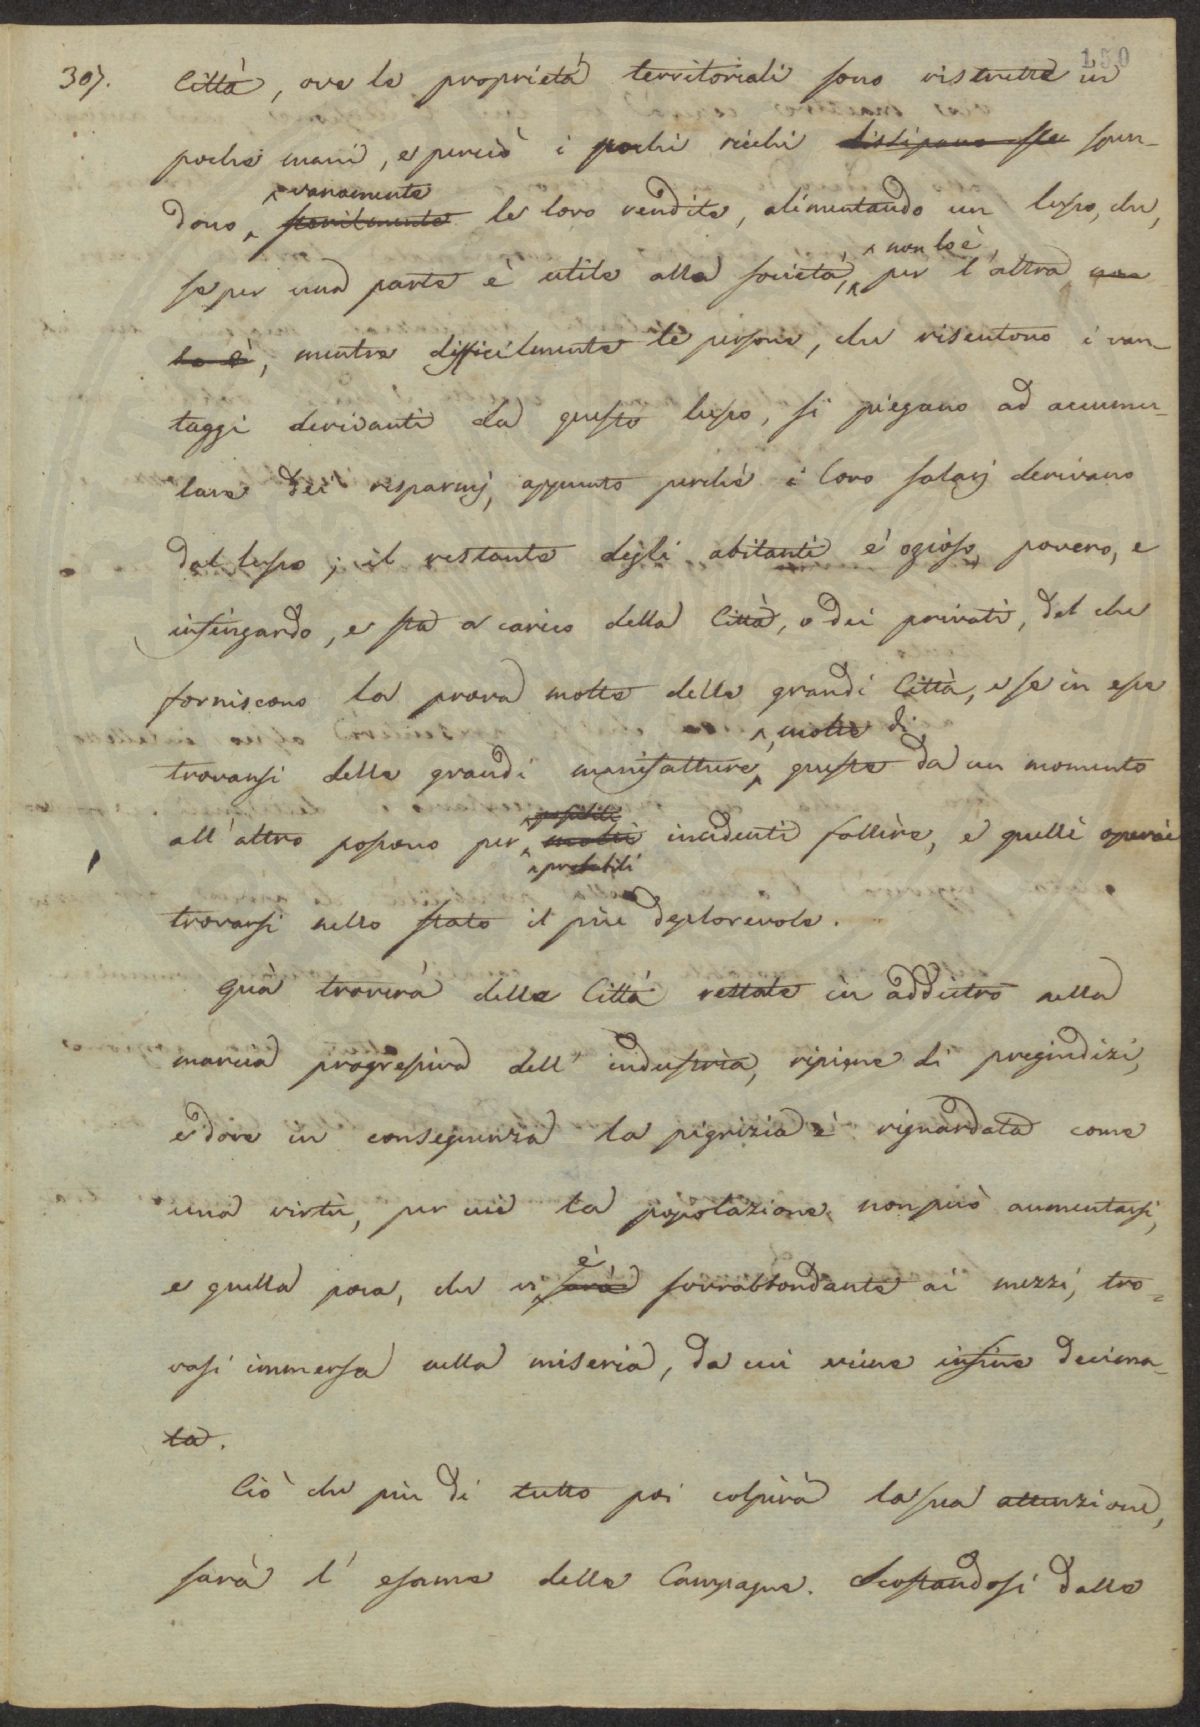 307. 150
Città, ove le proprietà territoriali sono ristrette in
poche mani, e perciò i pochi ricchi dissipano ste spen-
vanamente
dono, sterilmente le loro rendite, alimentando un lusso, che,
non lo è,
se per una parte è utile alla società, per l'altra non
lo è, mentre difficilmente le persone, che risentono i van-
taggi derivanti da questo lusso, si piegano ad accumu-
lare dei risparmj, appunto perchè i loro salarj derivano
dal lusso; il restante degli abitanti è ozioso, povero, e
infingardo, e sta a carico della Città, o dei privati, del che
forniscono la prova molte delle grandi Città, e se in esse
, molte di
trovansi delle grandi manifatture, queste da un momento
possibili
all'altro possono per molti incidenti fallire, e quelli operai
probabili
trovarsi nello stato il più deplorevole.
Quà troverà delle Città restate in addietro nella
marcia progressiva dell'industria, ripiene di pregiudizi,
e dove in conseguenza la pigrizia è riguardata come
una virtù, per cui la popolazione non può aumentarsi,
è
e quella poca, che vi sarà sovrabbondante ai mezzi, tro-
vasi immersa nella miseria, da cui viene infine decima-
ta.
Ciò che più di tutto poi colpirà la sua attenzione,
sarà l'esame delle Campagne. Scostandosi dalle